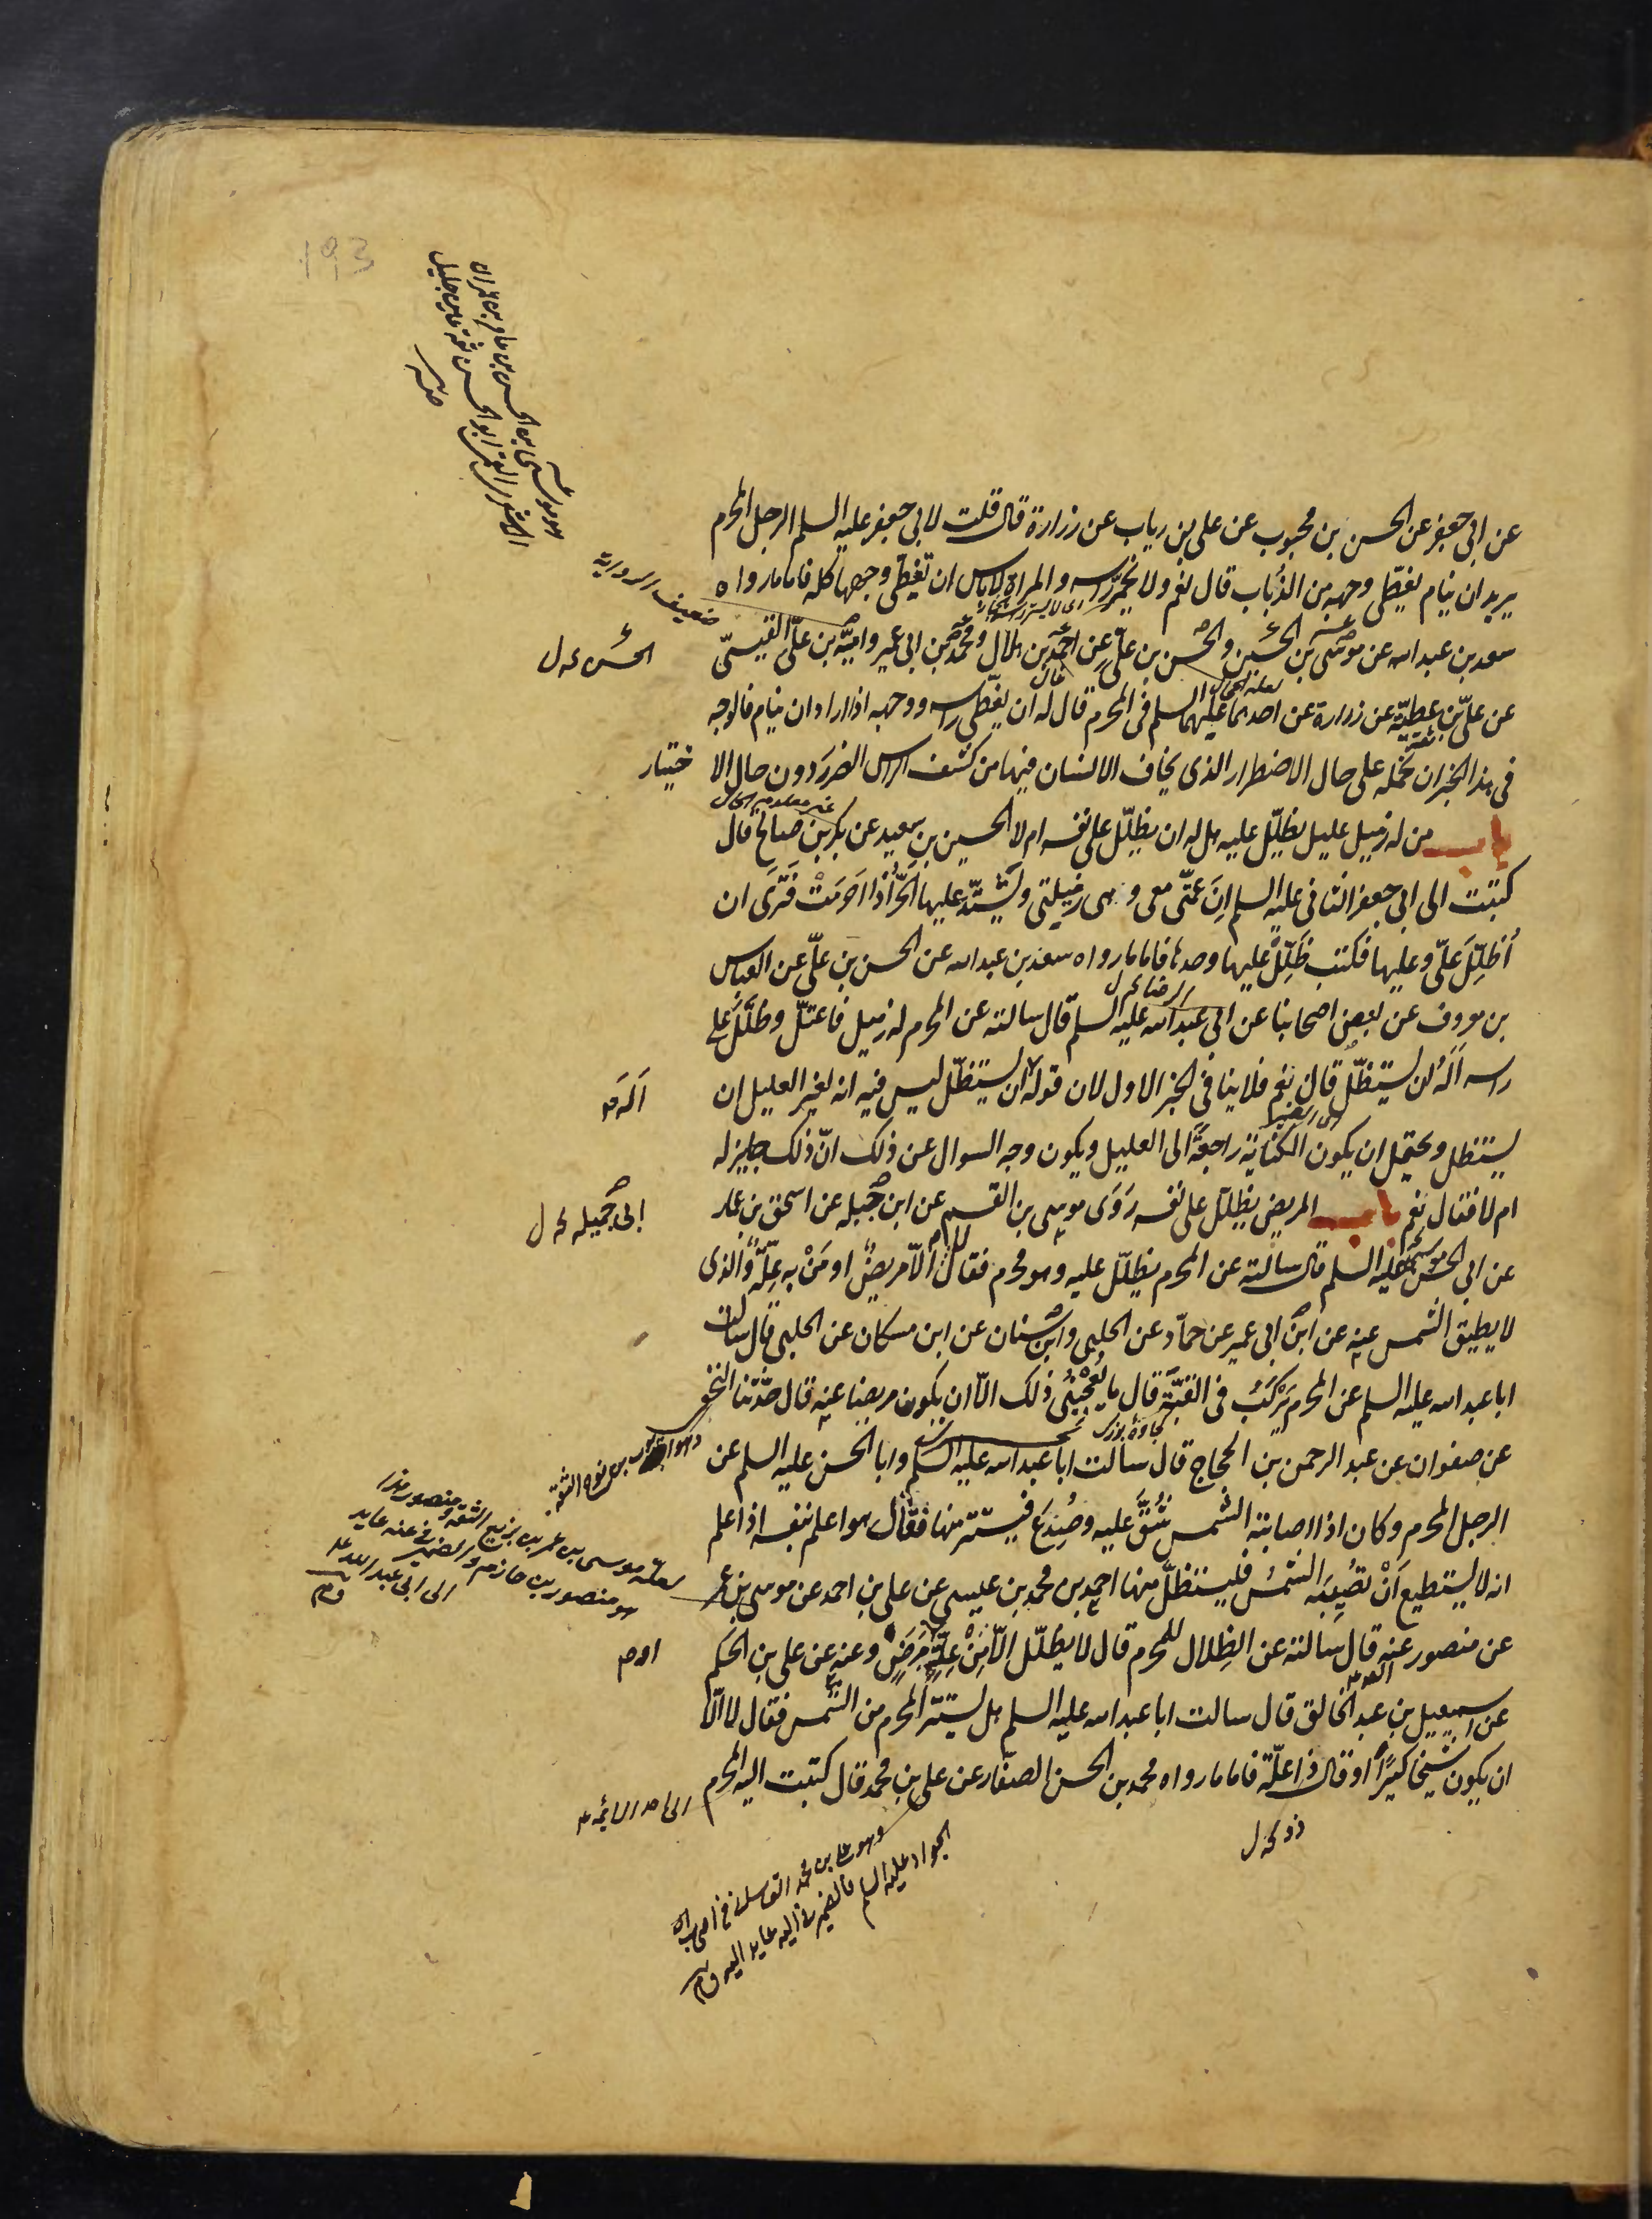 193
عن ابى جعفر عن الحسن بن محبوب عن على بن رياب عن زرارة قال قلت لابى جعفر عليه السلم الرجل المحرم
يريد ان ينام يغطّى وجهه من الذُباب قال نعم ولا يُخمّر راسه والمراة لا باس ان تغطى وجهها كله فاما ما رواه
ضعيف الرواية
سعد بن عبد الله عن موسى بن الحسن والحسن بن علىّ عن احمد بن هلال ومحمد بن ابى عمير واميّة بن علىّ القيسىّ
الحسن
عن علىّ بن عطيّة عن زرارة عن احدهما عليهما السلم فى المحرم قال له ان يغطّى راسه ووجهه اذا اراد ان ينام فالوجه
فى هذا الخبر ان نحمله على حال الاضطرار الذى يخاف الانسان فيها من كشف الراس الضرر دون حال الا ختيار
غير معلوم الحال
باب من له زميل عليل يظلّل عليه هل له ان يظلّل على نفسه ام لا الحسين بن سعيد عن بكر بن صالح قال
كتبت الى ابى جعفر الثانى عليه السلم انّ عمّتى معى وهى زميلتى ويشتدّ عليها الحرّ اذا احرمَتْ فترى ان
اُظلّلَ علىّ وعليها فكتب ظَلِّلْ عليها وحدها فاما ما رواه سعد بن عبد الله عن الحسن بن علىّ عن العباس
الرضا
بن معروف عن بعض اصحابنا عن ابى عبد الله عليه السلم قال سالته عن المحرم له زميل فاعتلّ وظلّل على
راسه اَلَهُ ان يستظلّ قال نعم فلا ينافى الخبر الاول لان قوله ان يستظلّ ليس فيه انه لغير العليل ان
اَلَهُ
اى الضمير
يستظل ويحتمل ان يكون الكناية راجعةً الى العليل ويكون وجه السوال عن ذلك انّ ذلك جايز له
ام لا فقال نعم باب المريض يظلّل على نفسه رَوَى موسى بن القسم عن ابن جبله عن اسحق بن عمار
ابى جميله
عن ابى الحسن عليه السلم قال سالته عن المحرم يظلّل عليه وهو محرم فقال لا الّا مريضٌ او مَنْ به عِلّةٌ والذى
لا يطيق الشمس عنه عن ابن ابى عمير عن حمّاد عن الحلبى وابن سنان عن ابن مسكان عن الحلبى قال سالت
ابا عبد الله عليه السلم عن المحرم يَرْكَبُ فى القبّة قال ما يُعْجِبُنى ذلك الّا ان يكون مريضا عنه قال حدّثنا النخعى
عن صفوان عن عبد الرحمن بن الحجاج قال سالت ابا عبد الله عليه السلم وابا الحسن عليه السلم عن
الرجل المحرم وكان اذا اصابته الشمس شُقَّ عليه وصُدِعَ فيستتر منها فقال هو اعلم بنفسه اذا علم
انه لا يستطيع اَنْ تُصيبَه الشمسُ فليستظلّ منها احمد بن محمد بن عيسى عن على بن احمد عن موسى بن عمر
لعله موسى بن عمر بن بزيع الثقة ومنصور هذا
هو منصور بن حازم والضمير فى عنه عايد
الى ابى عبد الله
عن منصور عنه قال سالته عن الظِلال للمحرم قال لا يظلّل الّا مِنْ عِلّةِ مَرَضٍ وعنه عن على بن الحكم
عن اسمعيل بن عبد الخالق قال سالت ابا عبد الله عليه السلم هل يستتر المحرم من الشمس فقال لا الّا
ان يكون شيخا كبيرًا او قال ذا علّة فاما ما رواه محمد بن الحسن الصفّار عن على بن محمد قال كتبت اليه المحرم
ذو
الجواد عليه السلم فالضمير فى اليه عايد اليه